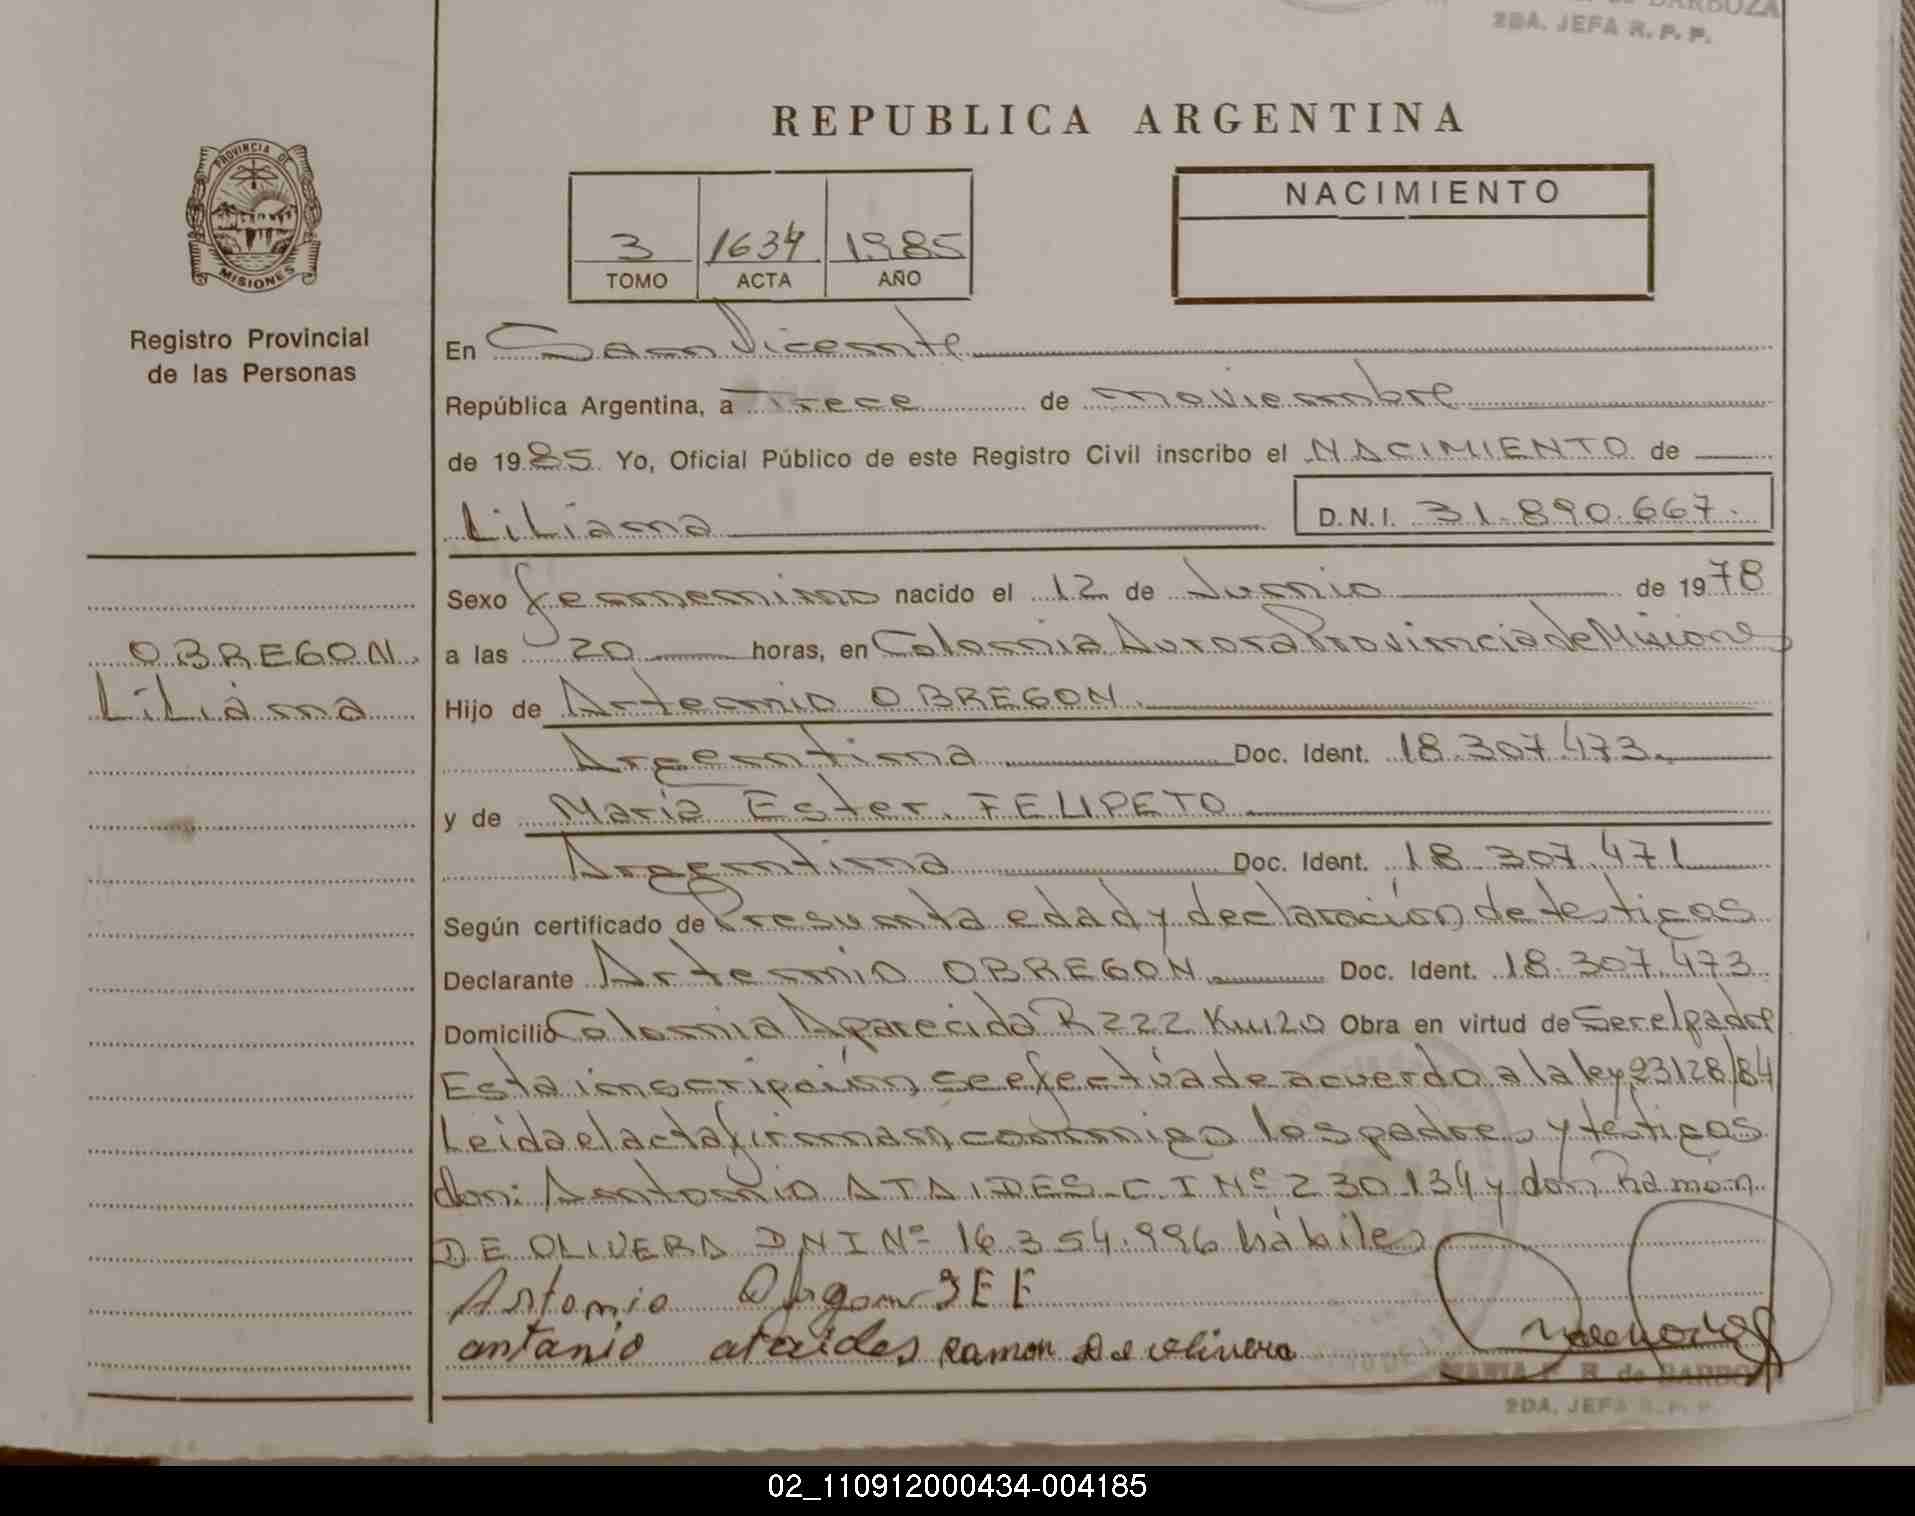 BARBOZA
2DA. JEFA R. P. P.
REPUBLICA ARGENTINA
PROVINCIA DE
MISIONES
Registro Provincial
de las Personas
3 1634 1985
TOMO ACTA AÑO
NACIMIENTO
En San Vicente
República Argentina, a Trece de noviembre
de 1985 Yo, Oficial Público de este Registro Civil inscribo el NACIMIENTO de
Liliana D.N.I. 31.890.667.
OBREGON
Liliana
Sexo femenino nacido el 12 de Junio de 1978
a las 20 horas, en Colonia Aurora Provincia de Misiones
Hijo de Artemio OBREGON
Argentina Doc. Ident. 18.307.473
y de Maria Ester FELIPETO
Argentina Doc. Ident. 18.307.471
Según certificado de Presunta edad y declaración de testigos
Declarante Artemio OBREGON Doc. Ident. 18.307.473
Domicilio Colonia Aparecida R 222 Km 20 Obra en virtud de Ser el padre
Esta inscripción se efectúa de acuerdo a la ley 23128/84
Leida el acta firman conmigo los padres y testigos
don: Antonio ATAIDES - C.I Nº 230.134 y don Ramón
DE OLIVERA DNI Nº 16.354.996 hábiles
Artomio
antonio ataides Ramon De olivera
MARIA R. de BARBOZA
2DA. JEFA R. P. P.
02_110912000434-004185